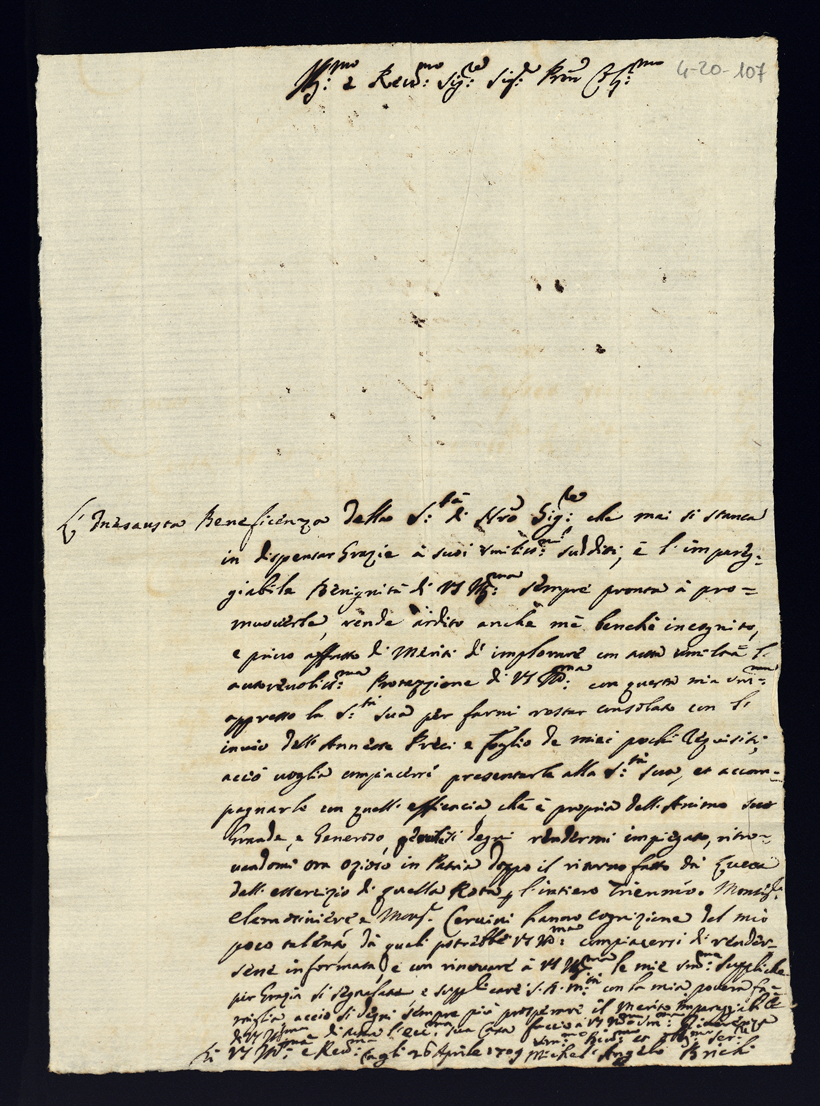 Ill:mo e Rev:mo Sig:re Sig:re Pron Col:mo 4-20-107
L'Inesausta Beneficenza della S:tà di Nro Sig:re che mai si stanca
in dispensar Grazie à suoi umiliss:mi sudditi, e l'impareg:
giabile Benignità di VS Ill:ma sempre pronta à pro=
muoverle, rende ardito anche mè benche incognito,
e privo affatto di Meriti di implorare con tutta umiltà l'
autorevoliss:ma Protezzione di VS Ill:ma con questa mia um:ma
appresso la S:tà Sua per farmi restar consolato con l'
invio dell'Annesse Preci e foglio de miei pochi Requisiti
acciò voglia compiacersi presentarle alla S:tà Sua, et accom=
pagnarle con quell'efficacia che è propria dell'Animo suo
Grande, e Generoso, si degni rendermi impiegato, ritro=
vandomi ora ozioso in Patria doppo il ritorno fatto da Lucca
dell'essercizio di quella Rota p l'intiero Triennio. Monsig:r
Elemosiniere e Mons:r Cervini hanno cognizione del mio
poco talento da quali potrebbe VS Ill:ma compiacersi di render=
sene informata, e con rinovare à VS Ill:ma le mie um:me suppliche
per Grazia si segnalata e supplicare S.D.M:tà con la mia povera fa=
miglia acciò si degni sempre più prosperare il Merito Impareggiabile
di VS Ill:ma di tutta l'Ecc:ma sua Casa faccio à VS Ill:ma um:ma Riverenza
Di VS Ill:ma e Rev:ma Cagli 26 Aprile 1709 Um:mo Dev:mo et Obl:mo Ser:re
Michel'Angelo Brichi